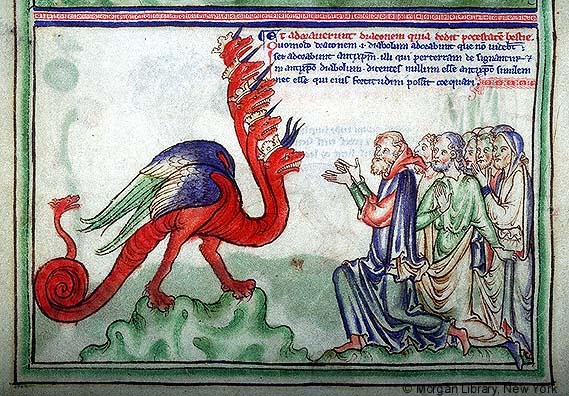 Et adoraverunt draconem quia dedit potestatē bestie
Quomodo draconem & diabolum adorabunt que nō videbūt
sed adorabunt antixpm̄. illi qui per terram designantur. &
in antixpō diabolum. dicentes nullum esse antixpō similem
nec esse qui eius fortitudini possit coequari.
© Morgan Library, New York